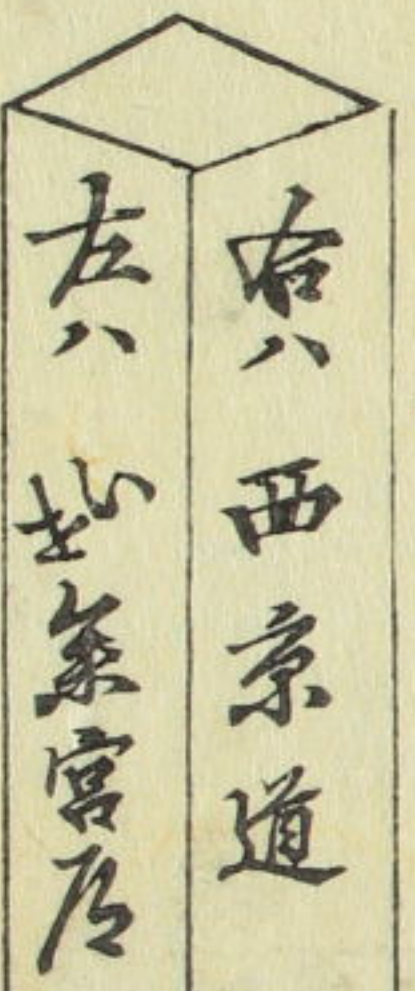 右ハ 西京道
左ハ いせ参宮道